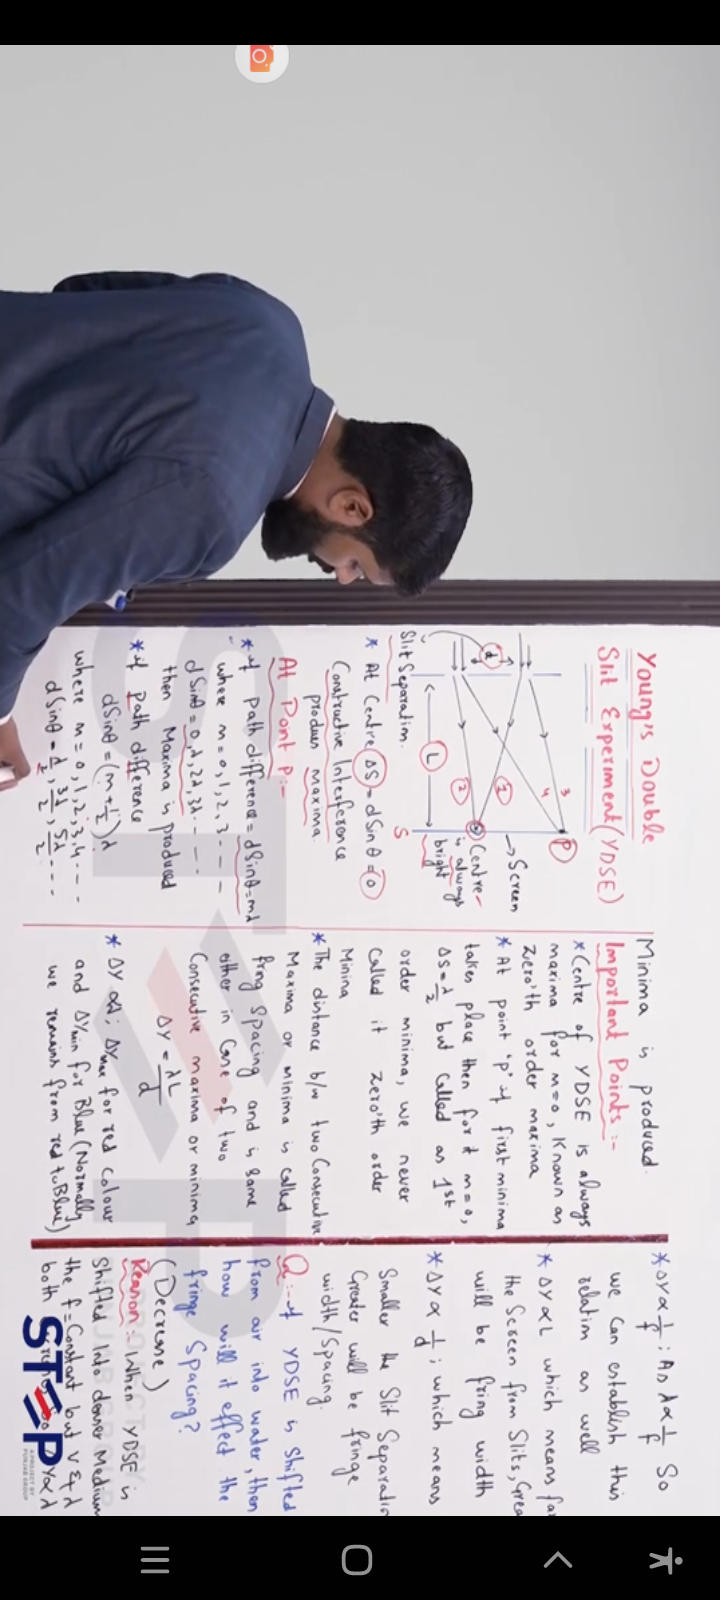 Young's Double
Slit Experiment (YDSE)
P
3
4
1
2
d
L
S
→ Screen
Centre-
is always
bright
Slit Separation.
* At Centre ΔS = dSinθ = 0
Constructive Interference
produces maxima.
At Pont P:-
* if path difference = dSinθ = mλ
where m = 0, 1, 2, 3 - - - -
dSinθ = 0, λ, 2λ, 3λ - - - -
then Maxima is produced
* if path difference
dSinθ = (m+1/2)λ
where m = 0, 1, 2, 3, 4 - - -
dSinθ = λ/2, 3λ/2, 5λ/2 - - - -
Minima is produced.
Important Points:-
* Centre of YDSE is always
maxima for m=0, Known as
zero'th order maxima
* At point 'p' if first minima
takes place then for it m=0,
ΔS = λ/2 but called as 1st
order minima, we never
called it zero'th order
Minima
* The distance b/w two Consecutive
Maxima or minima is called
fring Spacing and is same
either in Case of two
Consecutive maxima or minima
ΔY = λL/d
* ΔY ∝ λ; ΔYmax for red colour
and ΔYmin for Blue (Normally
we remains from red to Blue)
* ΔY ∝ 1/f; As λ ∝ 1/f So
we Can establish this
relation as well
* ΔY ∝ L which means fa
the Screen from Slits, Grea
will be fring width
* ΔY ∝ 1/d; which means
Smaller the Slit Separatio
Greater will be fringe
width/Spacing.
Q:- if YDSE is Shifted
from air into water, then
how will it effect the
fringe Spacing?
(Decrease)
Reason: When YDSE is
Shifted Into denser Medium
the f = Constant but V & λ
both
STEP
A PROJECT BY
PUNJAB GROUP